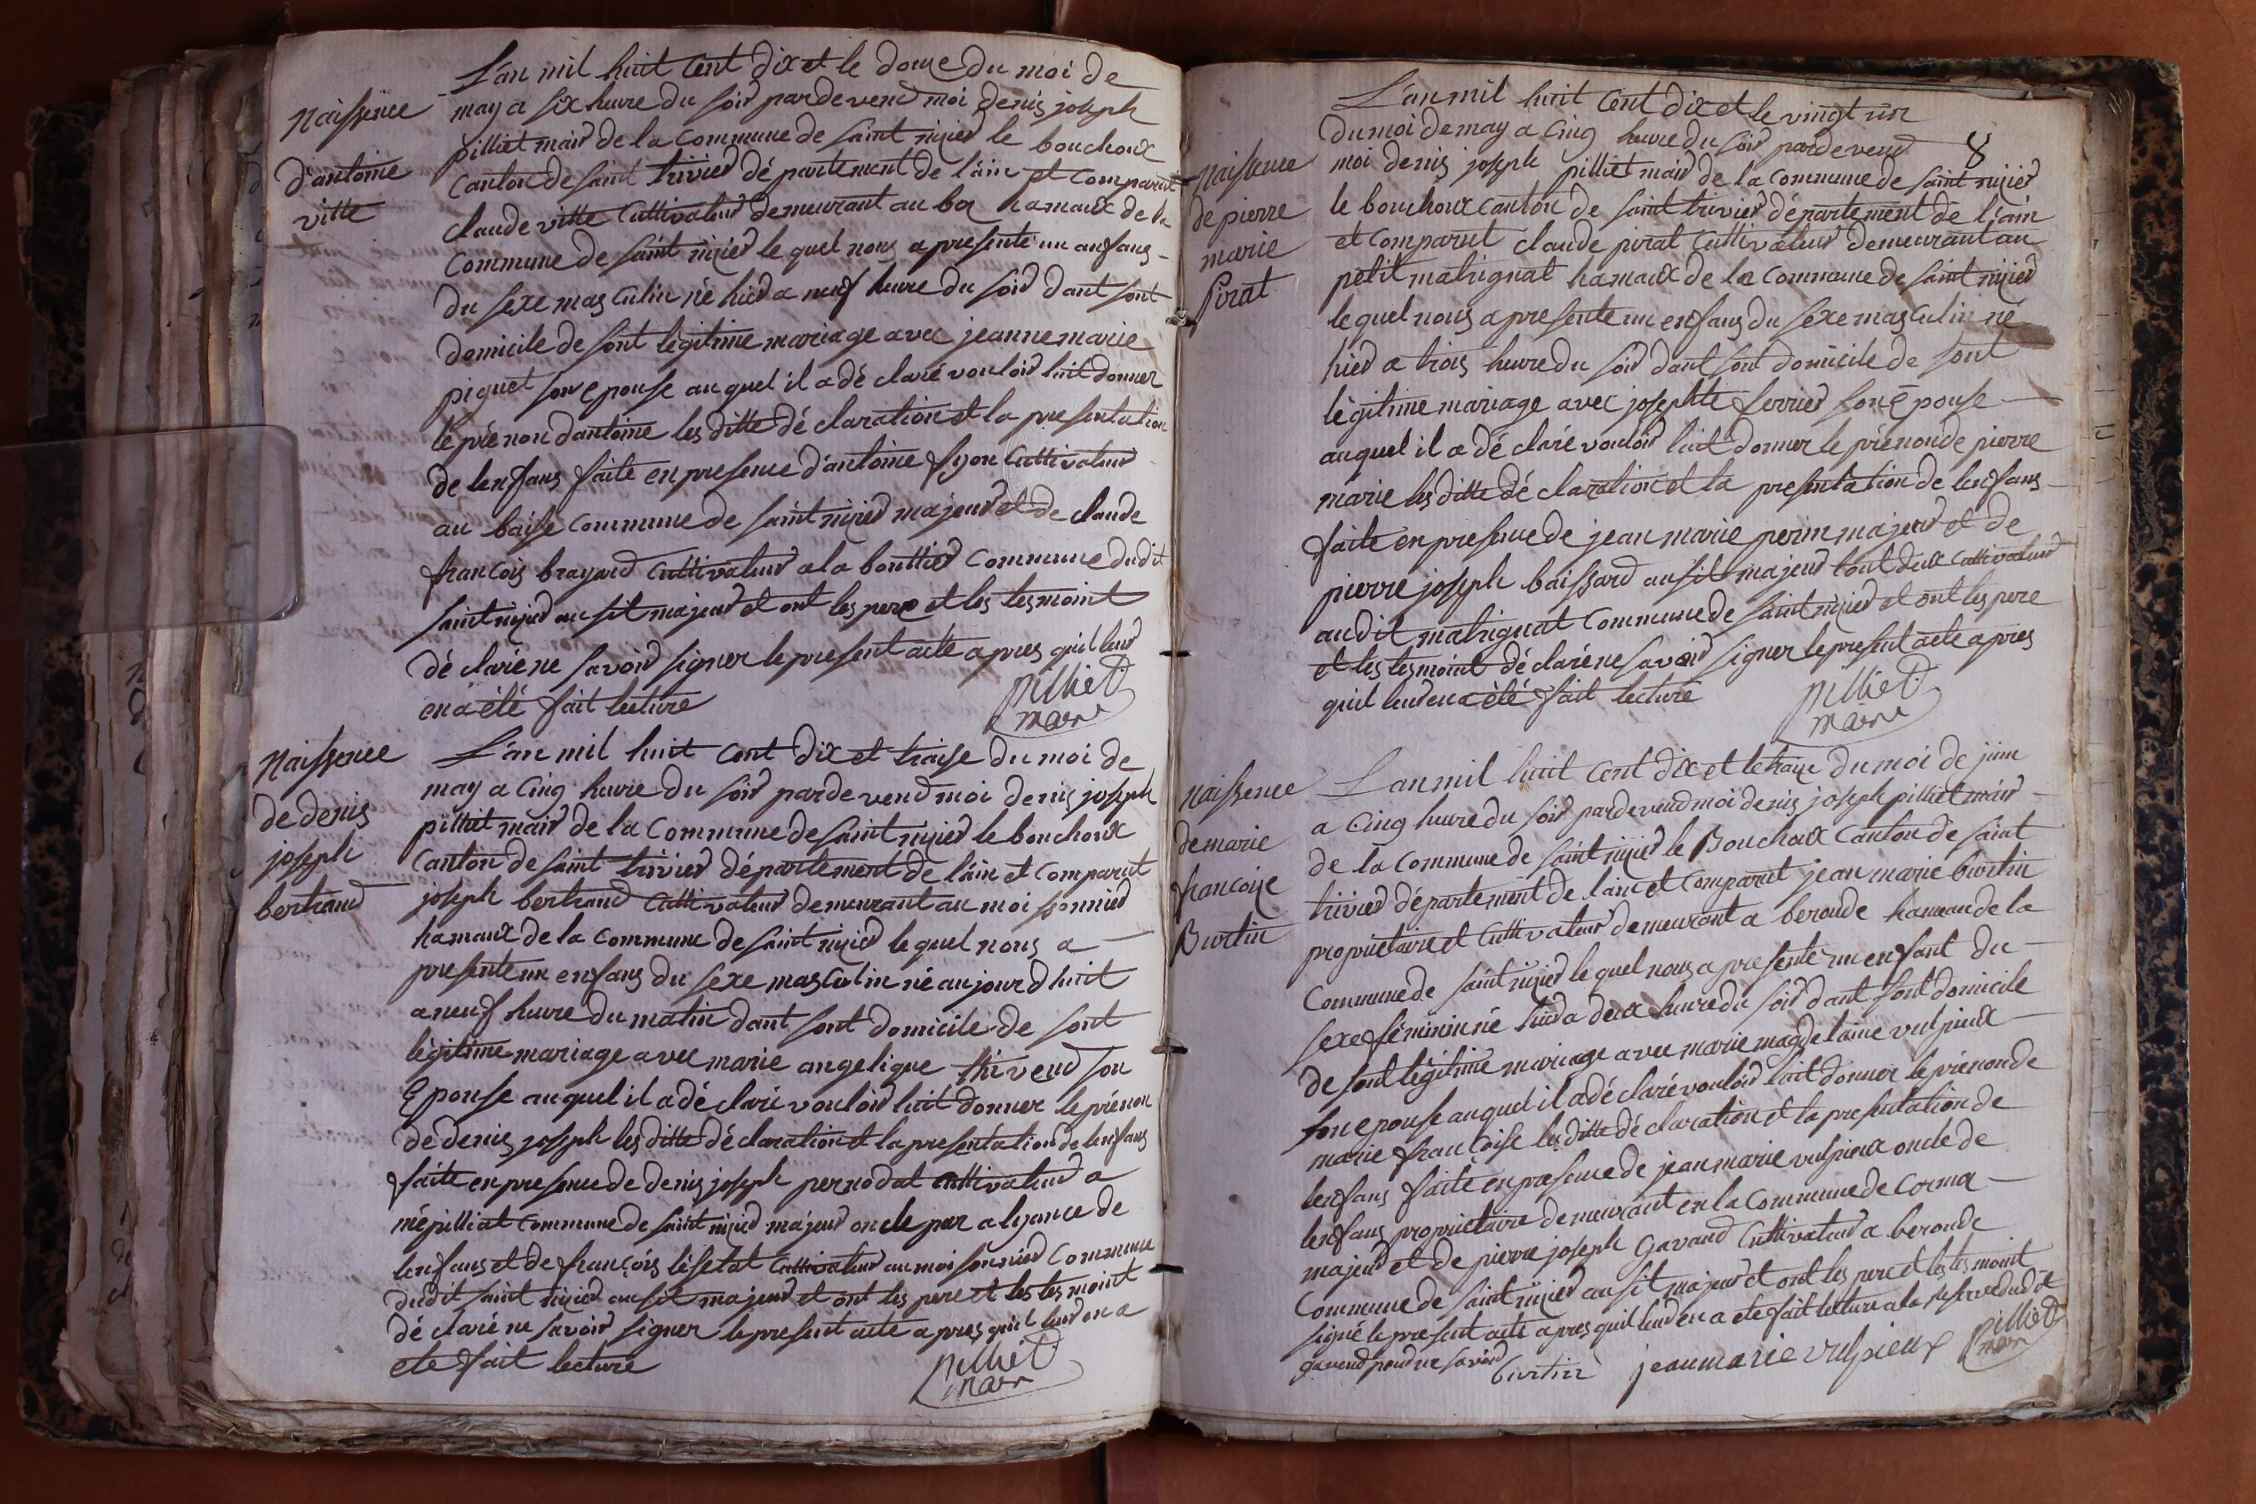 L'an mil huit cent dix et le douze du moi de
Naissence
may a six heure du soir pardevend moi denis joseph
pilliet mair de la commune de saint nizier le bouchoux
d'antoine
canton de saint trivier dé partement de l'ain et comparut
vitte
claude vitte cultivateur demeurant au boz hamaux de la
commune de saint nizier le quel nous a presente un anfans
du sexe mas culin né hier a neuf heure du soir dant sont
domicile de sont legitime mariage avec jeanne marie
piquet son epouse auquel il a dé claré vouloir luit donner
le prénon dantoine les ditte dé claration et la presentation
de lenfans faite en presence d'antoine fyon cultivateur
au baise commune de saint nizier majeur et de claude
francois brayard cultivateur a la bouttier commune dudit
saint nizier ausit majeur et ont les pere et les tesmoint
dé claré ne savoir signer le present acte apres quil leur
en a été fait lecture
pilliet
mair
Naissence
L'an mil huit cent dix et traise du moi de
de denis
may a cinq heure du soir pardevend moi denis joseph
joseph
pilliet mair de la commune de saint nizier le bouchoux
bertrand
canton de saint trivier département de lain et comparut
joseph bertrand cultivateur demeurant au moi sonnier
hamaux de la commune de saint nizier le quel nous a
presente un enfans du sexe masculin né aujourdhuit
a neuf heure du matin dant sont domicile de sont
légitime mariage avec marie angelique thivend son
Epouse auquel il a dé claré vouloir luit donner le prénon
de denis joseph les ditte dé claration et la presentation de lenfans
faite en presence de denis joseph pernodat cultivateur a
népilliat commune de saint nizier majeur oncle par alyance de
lenfans et de francois lésetat cultivateur au moi sonnier commune
dudit saint nizier ausit majeur et ont les pere et les tesmoint
dé claré ne savoir signer le present acte apres quil leur en a
ete fait lecture
pilliet
mair
8
L'an mil huit cent dix et le vingt un
du moi de may a cinq heure du soir pardevend
Naissence
moi denis joseph pilliet mair de la commune de saint nizier
de pierre
le bouchoux canton de saint trivier département de l'ain
marie
et comparut claude pirat cultivateur demeurant au
pirat
petit matrignat hamaux de la commune de saint nizier
le quel nous a presente un enfans du sexe mas culin né
hier a trois heure du soir dant sont domicile de sont
légitime mariage avec josephte ferrier son Epouse
auquel il a dé claré vouloir luit donner le prénon de pierre
marie les ditte dé claration et la presentation de lenfans
faite en presence de jean marie perin majeur et de
pierre joseph baissard ausit majeur tout deux cultivateur
audit matrignat commune de saint nizier et ont les pere
et les tesmoint dé claré ne savoir signer le present acte apres
quil leur en a été fait lecture
pilliet
mair
Naissence
L'an mil huit cent dix et le traize du moi de juin
de marie
a cinq heure du soir pardevend moi denis joseph pilliet mair
francoise
de la commune de saint nizier le Bouchoux canton de saint
Burtin
trivier département de lain et comparut jean marie burtin
proprietaire et cultivateur demeurant a beronde hameau de la
commune de saint nizier le quel nous a presente un enfant du
sexe féminin né hier a deux heure du soir dant sont domicile
de sont légitime mariage avec marie magdelaine vulpieux
son epouse auquel il a dé claré vouloir luit donner le prénon de
marie francoise les ditte dé claration et la presentation de
lenfans faite en presence de jean marie vulpieux oncle de
lenfans proprietaire demeurant en la commune de corma
majeur et de pierre joseph gavand cultivateur a beronde
commune de saint nizier ausit majeur et ont les pere et les tesmoint
signé le present acte apres quil leur en a ete fait lecture a la reserve dudit
gavend pour ne savoir
burtin jean marie vulpieux pilliet
mair